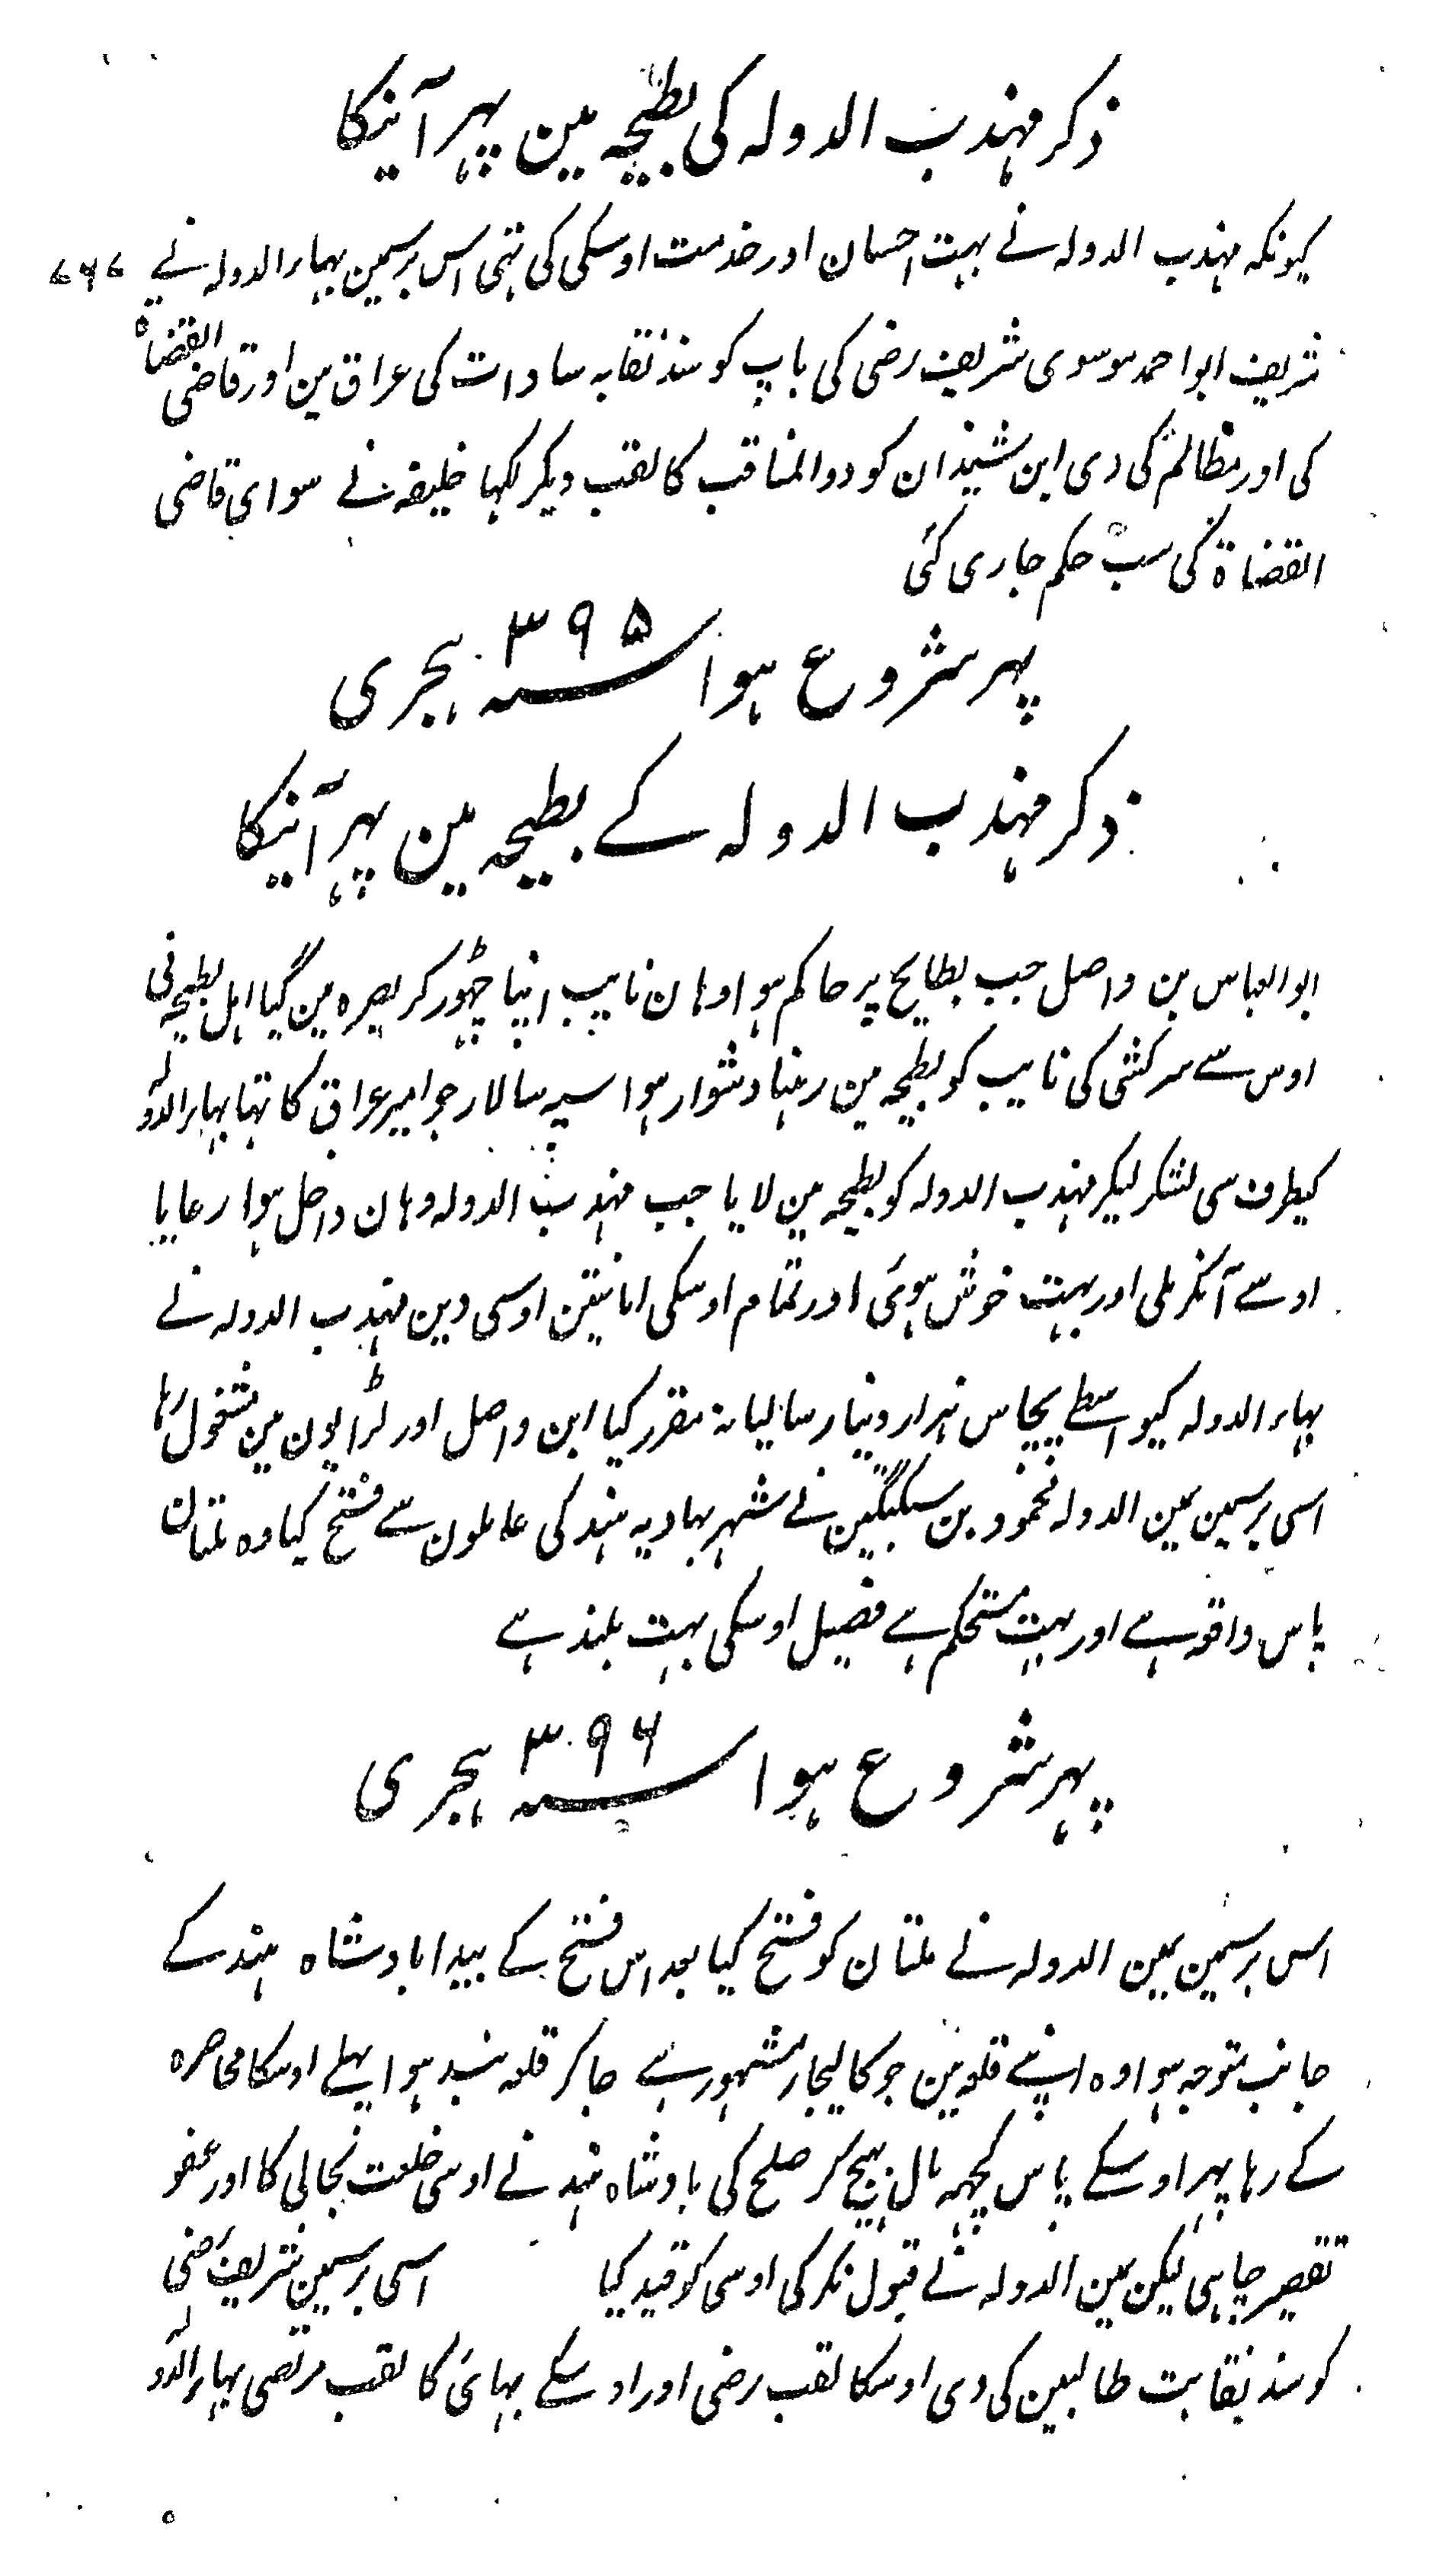 ذکر مہذب الدولہ کی بطیحہ مین پہر آنیکا
کیونکہ مہذب الدولہ نے بہت احسان اور خدمت اوسکی کی تہی اس برسمین بہاء الدولہ نے ۷۶۷
شریف ابو احمد موسوی شریف رضی کی باپ کو سند نقابہ سادات کی عراق مین اور قاضی القضاۃ
کی اور مظالم کی دی این سند ان کو ذوالمناقب کا لقب دیکر لکہا خلیفہ نے سوای قاضی
القضاۃ کی سب حکم جاری کئی
پہر شروع ہوا سنہ ۳۹۵ ہجری
ذکر مہذب الدولہ کے بطیحہ مین پہر آنیکا
ابو العباس بن واصل جب بطایح پر حاکم ہوا وہان نایب اپنا چہوڑ کر بصرہ مین گیا اہل بطیحہ نی
اوس سے سرکشی کی نایب کو بطیحہ مین رہنا دشوار ہوا سپہ سالار جو امیر عراق کا تہا بہاء الدولہ
کیطرف سی لشکر لیکر مہذب الدولہ کو بطیحہ مین لایا جب مہذب الدولہ وہان داخل ہوا رعایا
اوسے آنکر ملی اور بہت خوش ہوئی اور تمام اوسکی امانتین اوسی دین مہذب الدولہ نے
بہاء الدولہ کیواسطے پچاس ہزار دینار سالیانہ مقرر کیا ابن واصل اور لڑایون مین مشغول رہا
اسی برسمین یمین الدولہ محمود بن سبکتگین نے شہر بہادیہ ہند کی عاملون سے فتح کیا وہ ملتان
پاس واقع ہے اور بہت مستحکم ہے فصیل اوسکی بہت بلند ہے
پہر شروع ہوا سنہ ۳۹۶ ہجری
اس برسمین یمین الدولہ نے ملتان کو فتح کیا بعد اس فتح کے بیدا بادشاہ ہند کے
جانب متوجہ ہوا وہ اپنے قلعہ مین جو کالیجار مشہور ہے جا کر قلعہ بند ہوا پہلے اوسکا محاصرہ
کے رہا پہر اوسکے پاس کچہہ مال بہیج کر صلح کی بادشاہ ہند نے اوسی خلعت بحالی کا اور عفو
تقصیر چاہی لیکن یمین الدولہ نے قبول نکر کی اوسی کو قید کیا اسی برسمین شریف رضی
کو سند نقابت طالبین کی دی اوسکا لقب رضی اور اوسکے بہائی کا لقب مرتضی بہاء الدولہ